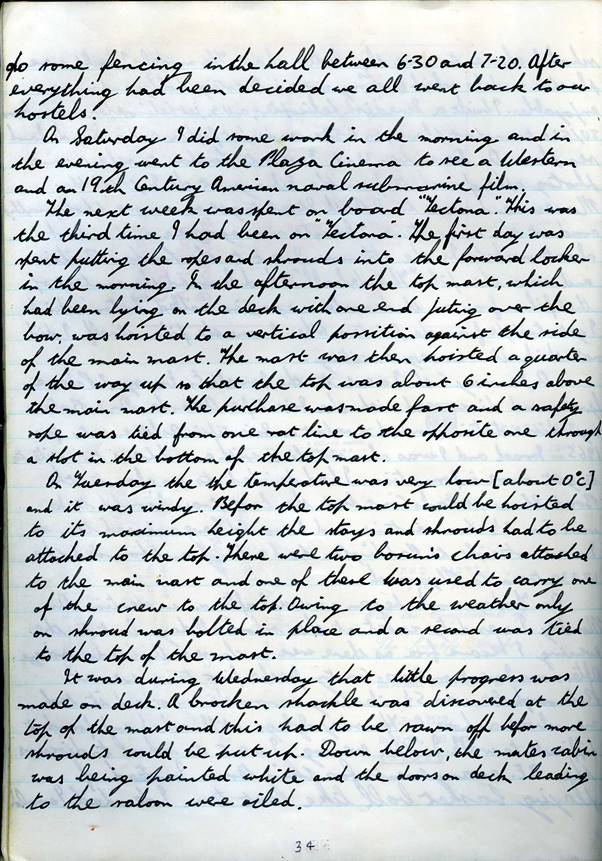 do some fencing in the hall between 6-30 and 7-20. After
everything had been decided we all went back to our
hostels.
On Saturday I did some work in the morning and in
the evening went to the Plaza Cinema to see a Western
and an 19th Century American naval submarine film.
The next week was spent on board "Tectona". This was
the third time I had been on "Tectona". The first day was
spent putting the ropes and shrouds into the forward locker
in the morning. In the afternoon the top mast, which
had been lying on the deck with one end juting over the
bow, was hoisted to a vertical possition against the side
of the main mast. The mast was then hoisted a quarter
of the way up so that the top was about 6 inches above
the main mast. The purchase was made fast and a safety
rope was tied from one rat line to the opposite one through
a slot in the bottom of the top mast.
On Tuesday the the temperature was very low [about 0°c]
and it was windy. Befor the top mast could be hoisted
to its maximum height the stays and shrouds had to be
attached to the top. There were two bosun's chairs attached
to the main mast and one of these was used to carry one
of the crew to the top. Owing to the weather only
on shroud was bolted in place and a second was tied
to the top of the mast.
It was during Wednesday that little progress was
made on deck. A brocken shackle was discovered at the
top of the mast and this had to be sawn off befor more
shrouds could be put up. Down below, the mates cabin
was being painted white and the doors on deck leading
to the saloon were oiled.
34